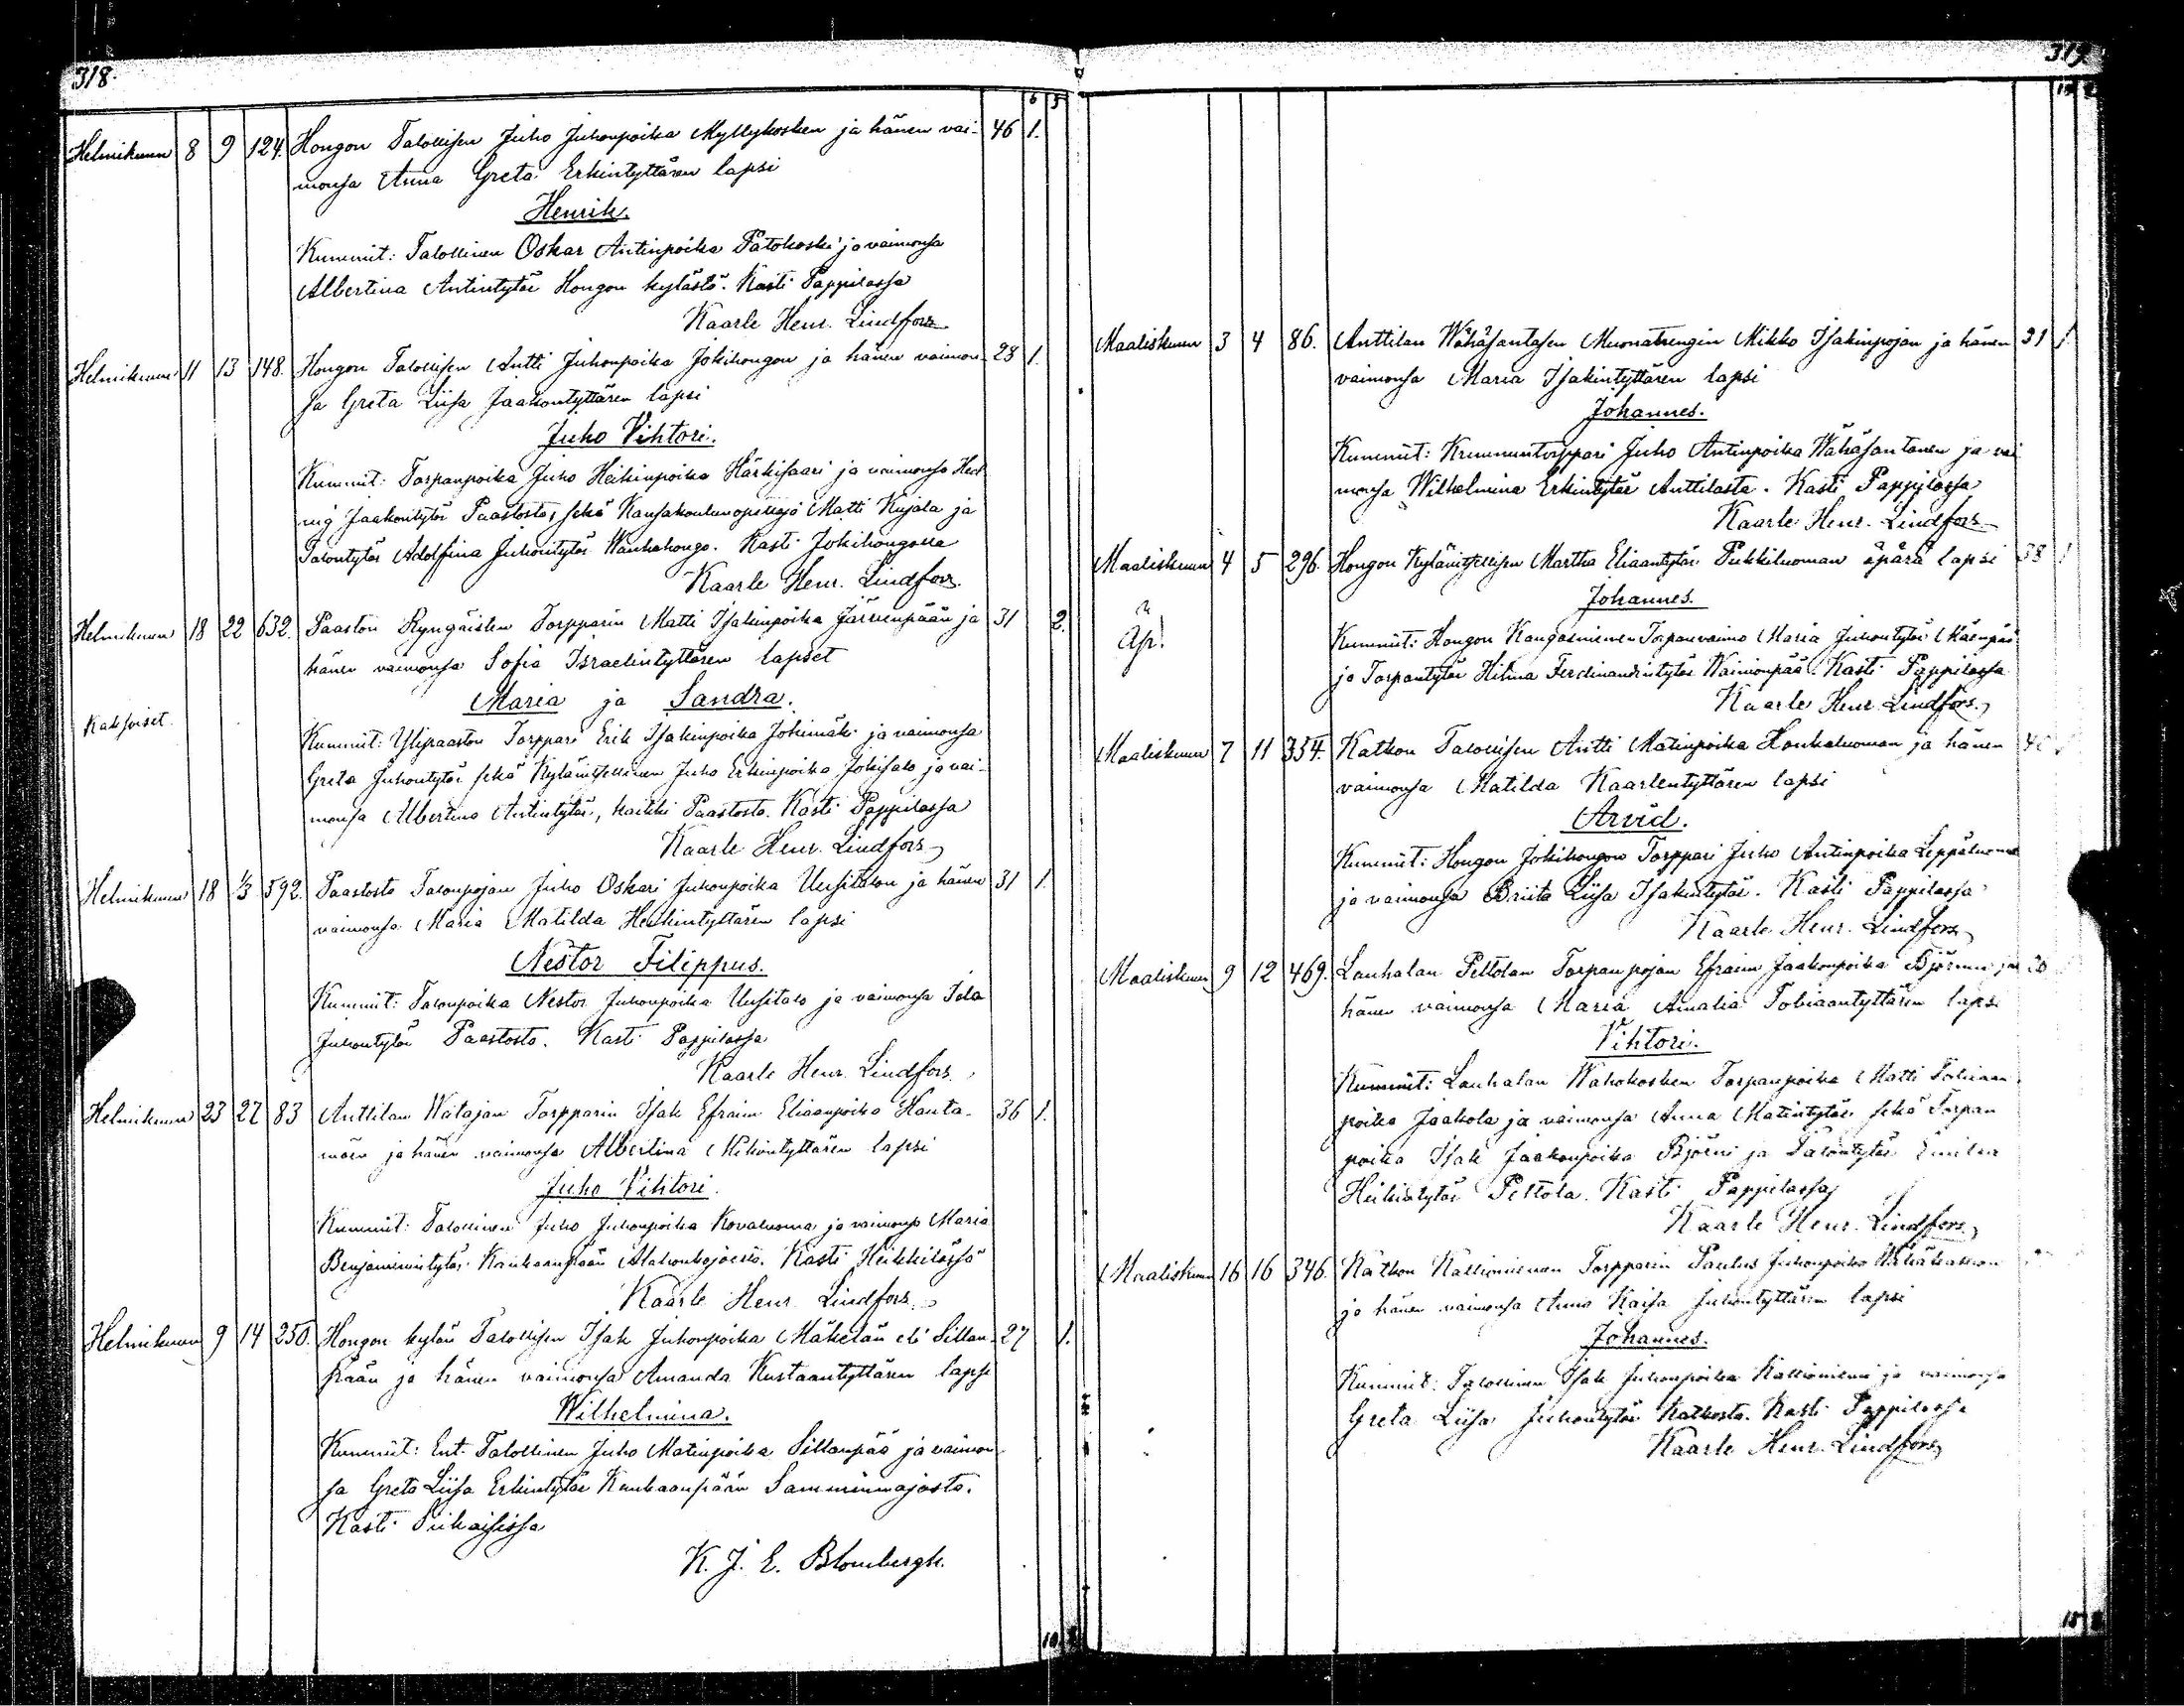 318.
6 5
Helmikuun 8 9 124. Hongon Talollisen Juho Juhonpoika Myllykosken ja hänen vai- 46 1.
monsa Anna Greta Erkintyttären lapsi
Henrik.
Kummit: Talollinen Oskar Antinpoika Patokoski ja vaimonsa
Albertina Antintytär Hongon kylästä. Kasti Pappilassa
Kaarle Henr. Lindfors
Helmikuun 11 13 148. Hongon Talollisen Antti Juhonpoika Jokihongon ja hänen vaimon- 28 1.
sa Greta Liisa Jaakontyttären lapsi
Juho Vihtori.
Kummit: Torpanpoika Juho Heikinpoika Härkisaari ja vaimonsa Hed-
vig Jaakontytär Paastosta, sekä Kansakoulunopettaja Matti Kujala ja
Talontytär Adolfina Juhontytär Wanhahongo. Kasti Jokihongossa
Kaarle Henr. Lindfors.
Helmikuun 18 22 632. Paaston Ryngäisten Torpparin Matti Isakinpoika Järvenpään ja 31 2.
hänen vaimonsa Sofia Israelintyttären lapset
Maria ja Sandra.
Kaksoiset.
Kummit: Ylipaaston Torppari Erik Isakinpoika Jokimäki ja vaimonsa
Greta Juhontytär sekä Kylänitsellinen Juho Erkinpoika Jokisalo ja vai-
monsa Albertina Antintytär, kaikki Paastosta. Kasti Pappilassa
Kaarle Henr. Lindfors
Helmikuun 18 1/3 592. Paastosta Talonpojan Juho Oskari Juhonpoika Uusitalon ja hänen 31 1.
vaimonsa Maria Matilda Heikintyttären lapsi
Nestor Filippus.
Kummit: Talonpoika Nestor Juhonpoika Uusitalo ja vaimonsa Ida
Juhontytär Paastosta. Kasti Pappilassa
Kaarle Henr. Lindfors.
Helmikuun 23 27 83 Anttilan Watajan Torpparin Isak Efraim Eliaanpoika Hauta- 36 1.
mäen ja hänen vaimonsa Albertina Mikontyttären lapsi
Juho Vihtori.
Kummit: Talollinen Juho Juhonpoika Kovaluoma ja vaimonsa Maria
Benjaminintytär Kankaanpään Alahonkajoesta. Kasti Heikkilässä
Kaarle Henr. Lindfors.
Helmikuun 9 14 250. Hongon kylän Talollisen Isak Juhonpoika Mäkelän eli Sillan- 27 1.
pään ja hänen vaimonsa Amanda Kustaantyttären lapsi
Wilhelmina.
Kummit: Ent. Talollinen Juho Matinpoika Sillanpää ja vaimon-
sa Greta Liisa Erkintytär Kankaanpään Samminmajasta.
Kasti Siikaisissa
K. J. E. Blombergh.
319.
Maaliskuun 3 4 86. Anttilan Wähäsantasen Muonatrengin Mikko Isakinpojan ja hänen 31 1.
vaimonsa Maria Isakintyttären lapsi
Johannes.
Kummit: Kruununtorppari Juho Antinpoika Wähäsantanen ja vai
monsa Wilhelmina Erkintytär Anttilasta. Kasti Pappilassa
Kaarle Henr. Lindfors
Maaliskuun 4 5 296. Hongon Kylänitsellisen Martha Eliaantytär Pukkiluoman äpärä lapsi 38 1
Äp!
Johannes.
Kummit: Hongon Kangasniemen Torpanvaimo Maria Juhontytär Mäenpää
ja Torpantytär Hilma Ferdinandintytär Wainionpää. Kasti Pappilassa
Kaarle Henr. Lindfors.
Maaliskuun 7 11 354. Katkon Talollisen Antti Matinpoika Honkaluoman ja hänen
vaimonsa Matilda Kaarlentyttären lapsi
Arvid.
Kummit: Hongon Jokihongon Torppari Juho Antinpoika Leppäluoma
ja vaimonsa Briita Liisa Isakintytär. Kasti Pappilassa
Kaarle Henr. Lindfors
Maaliskuun 9 12 469. Lauhalan Peltolan Torpanpojan Efraim Jaakonpoika Björnin ja 20
hänen vaimonsa Maria Amalia Tobiaantyttären lapsi
Vihtori.
Kummit: Lauhalan Wahokosken Torpanpoika Matti Tobiaan
poika Jaakola ja vaimonsa Anna Matintytär sekä Torpan
poika Isak Jaakonpoika Björni ja Talontytär Emilia
Heikintytär Peltola. Kasti Pappilassa
Kaarle Henr. Lindfors.
Maaliskuun 16 16 346. Katkon Kallioniemen Torpparin Paulus Juhonpoika
ja hänen vaimonsa Anna Kaisa Juhontyttären lapsi
Johannes.
Kummit: Talollinen Isak Juhonpoika Kallioniemi ja vaimonsa
Greta Liisa Juhontytär Katkosta. Kasti Pappilassa
Kaarle Henr. Lindfors